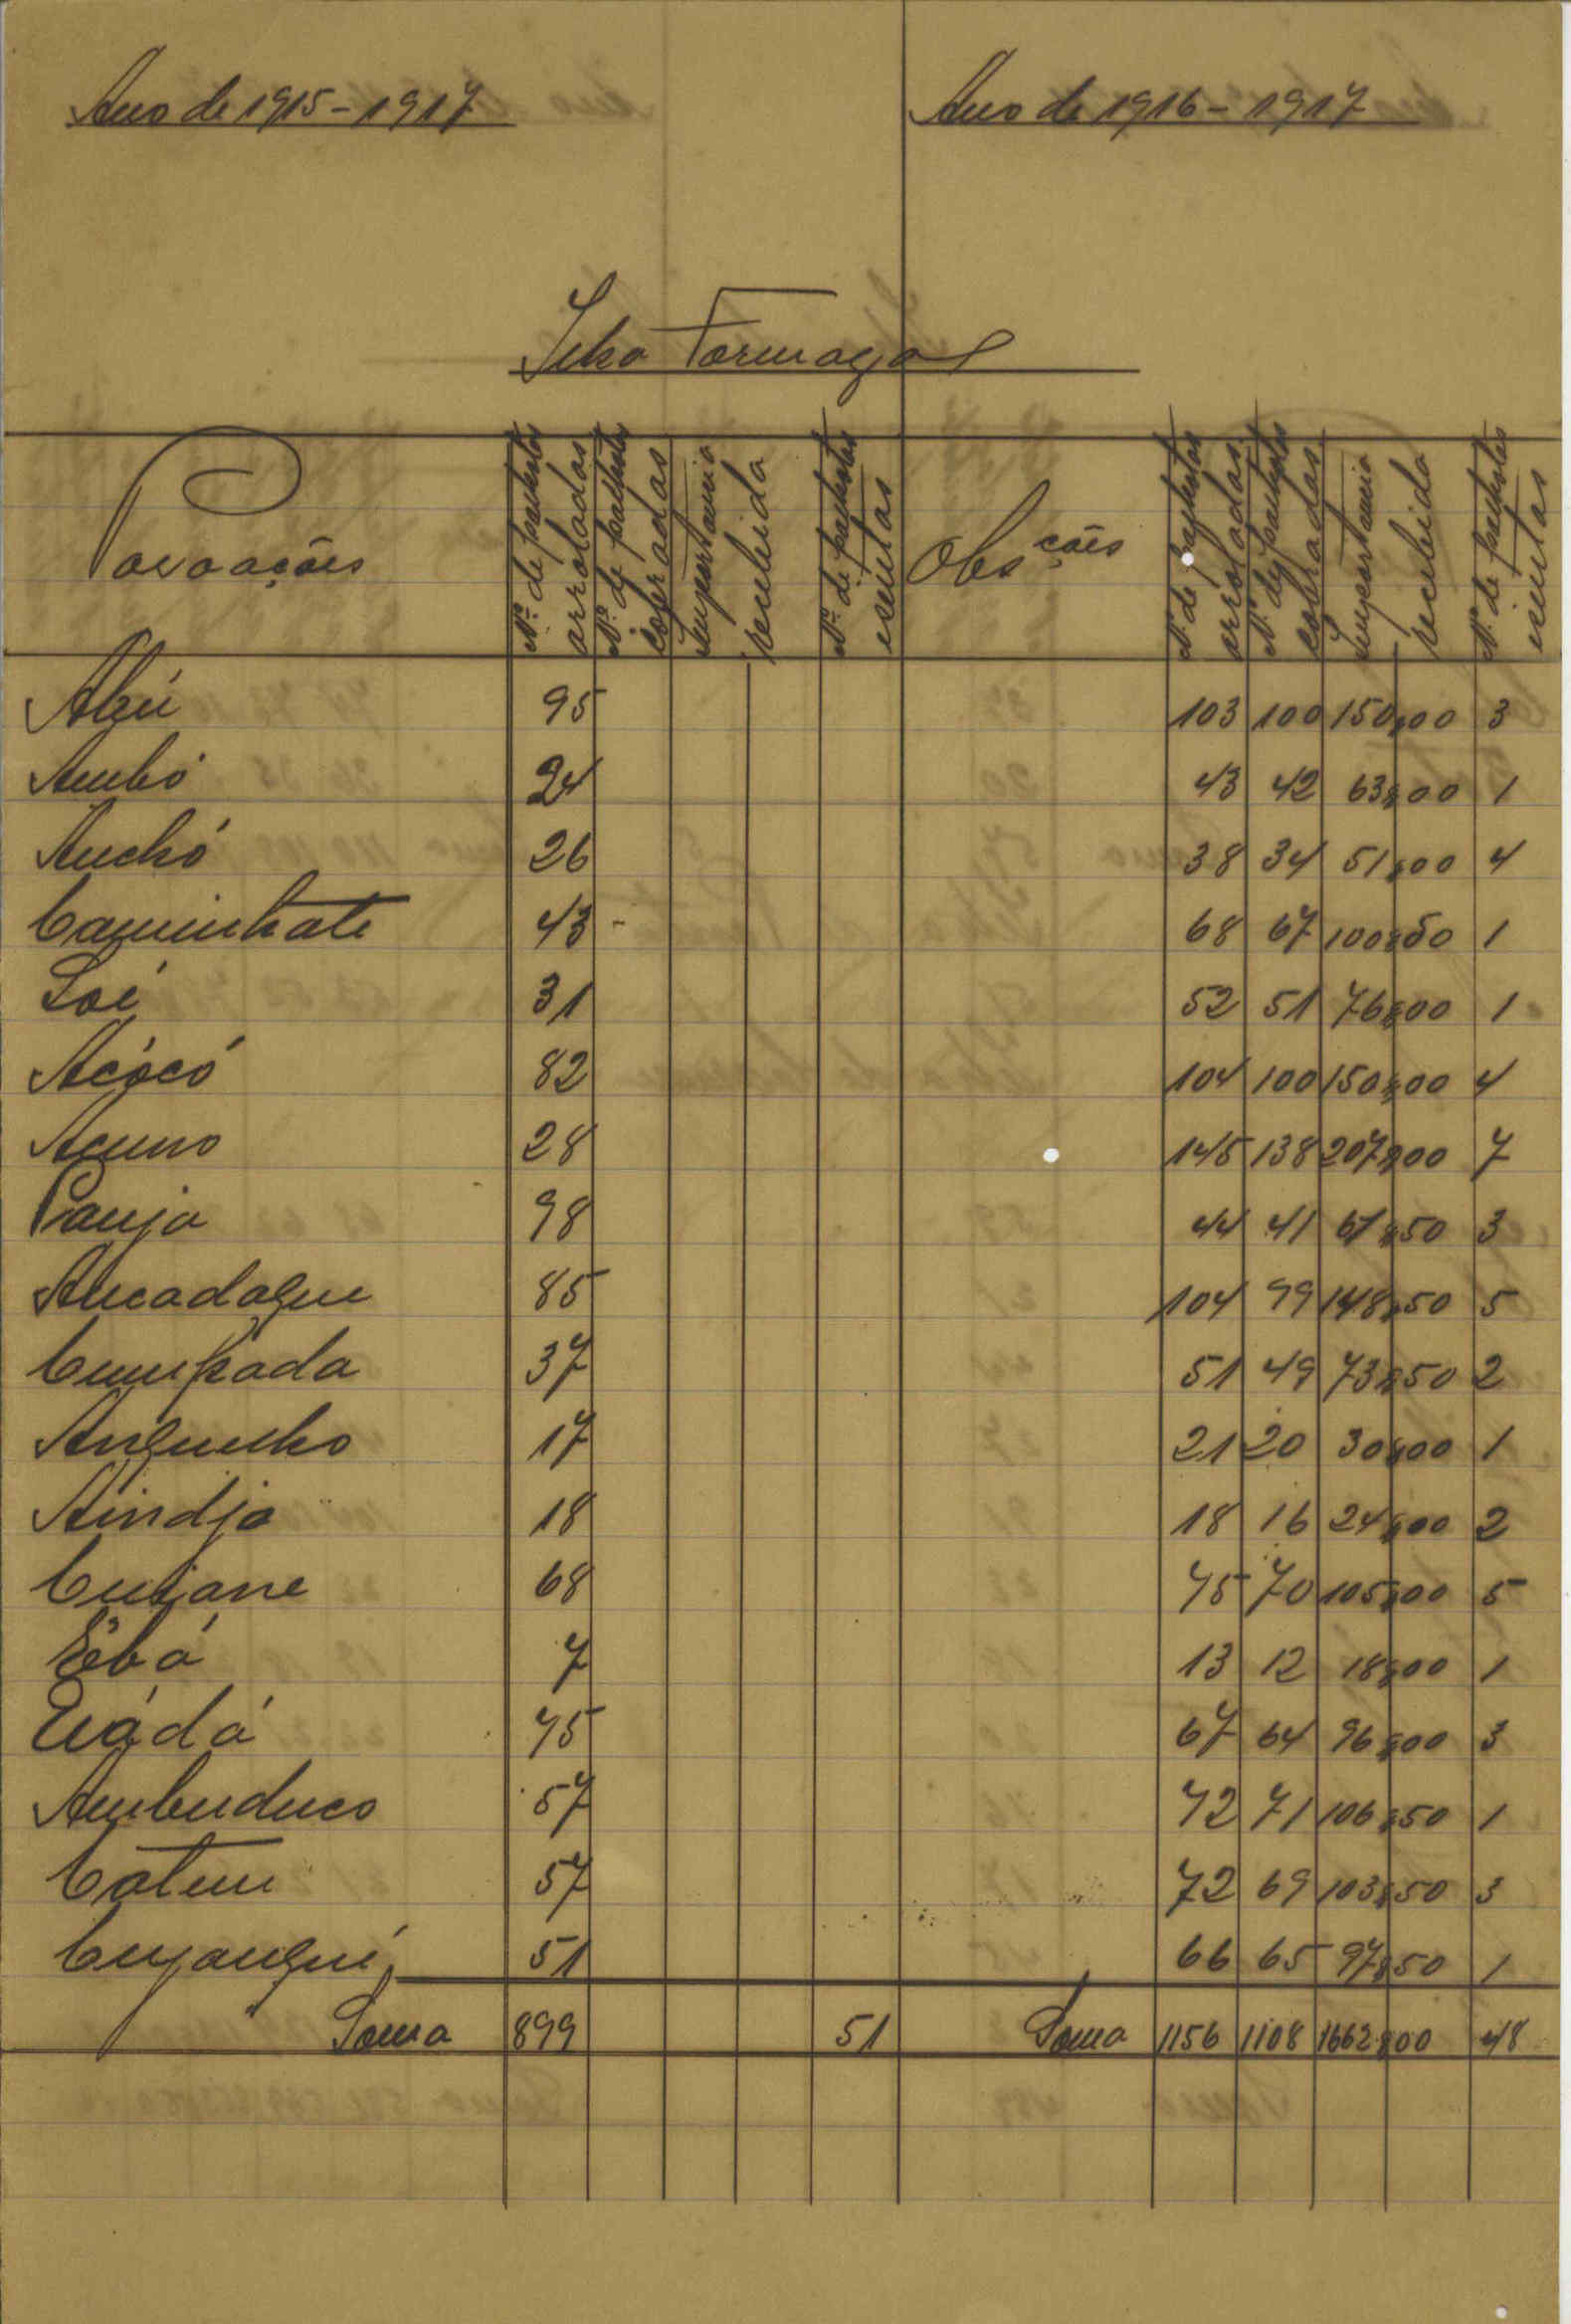 Ano de 1915-1917 Ano de 1916-1917
Ilha Formosa
Povoações Nº de palhotas arroladas Nº de palhotas cobradas Importancia recebida Nº de palhotas escutas Obsções Nº de palhotas arroladas Nº de palhotas cobradas Importancia recebida Nº de palhotas escutas
Abú 95 103 100 150$00 3
Ambó 24 43 42 63$00 1
Anchó 26 38 34 51$00 4
Caminhate 43 - 68 67 100$50 1
Loi 31 52 51 76$00 1
Acócó 82 104 100 150$00 4
Acuno 28 145 138 207$00 7
Canja 98 44 41 61$50 3
Ancadaque 85 104 99 148$50 5
Cumpada 37 51 49 73$50 2
Anquecho 17 21 20 30$00 1
Aindja 18 18 16 24$00 2
Cujane 68 75 70 105$00 5
7 13 12 18$00 1
Uádá 75 67 64 96$00 3
Ambuduco 57 72 71 106$50 1
Catem 57 72 69 103$50 3
Cuyanqué 51 66 65 97$50 1
Soma 899 51 Soma 1156 1108 1662$00 48